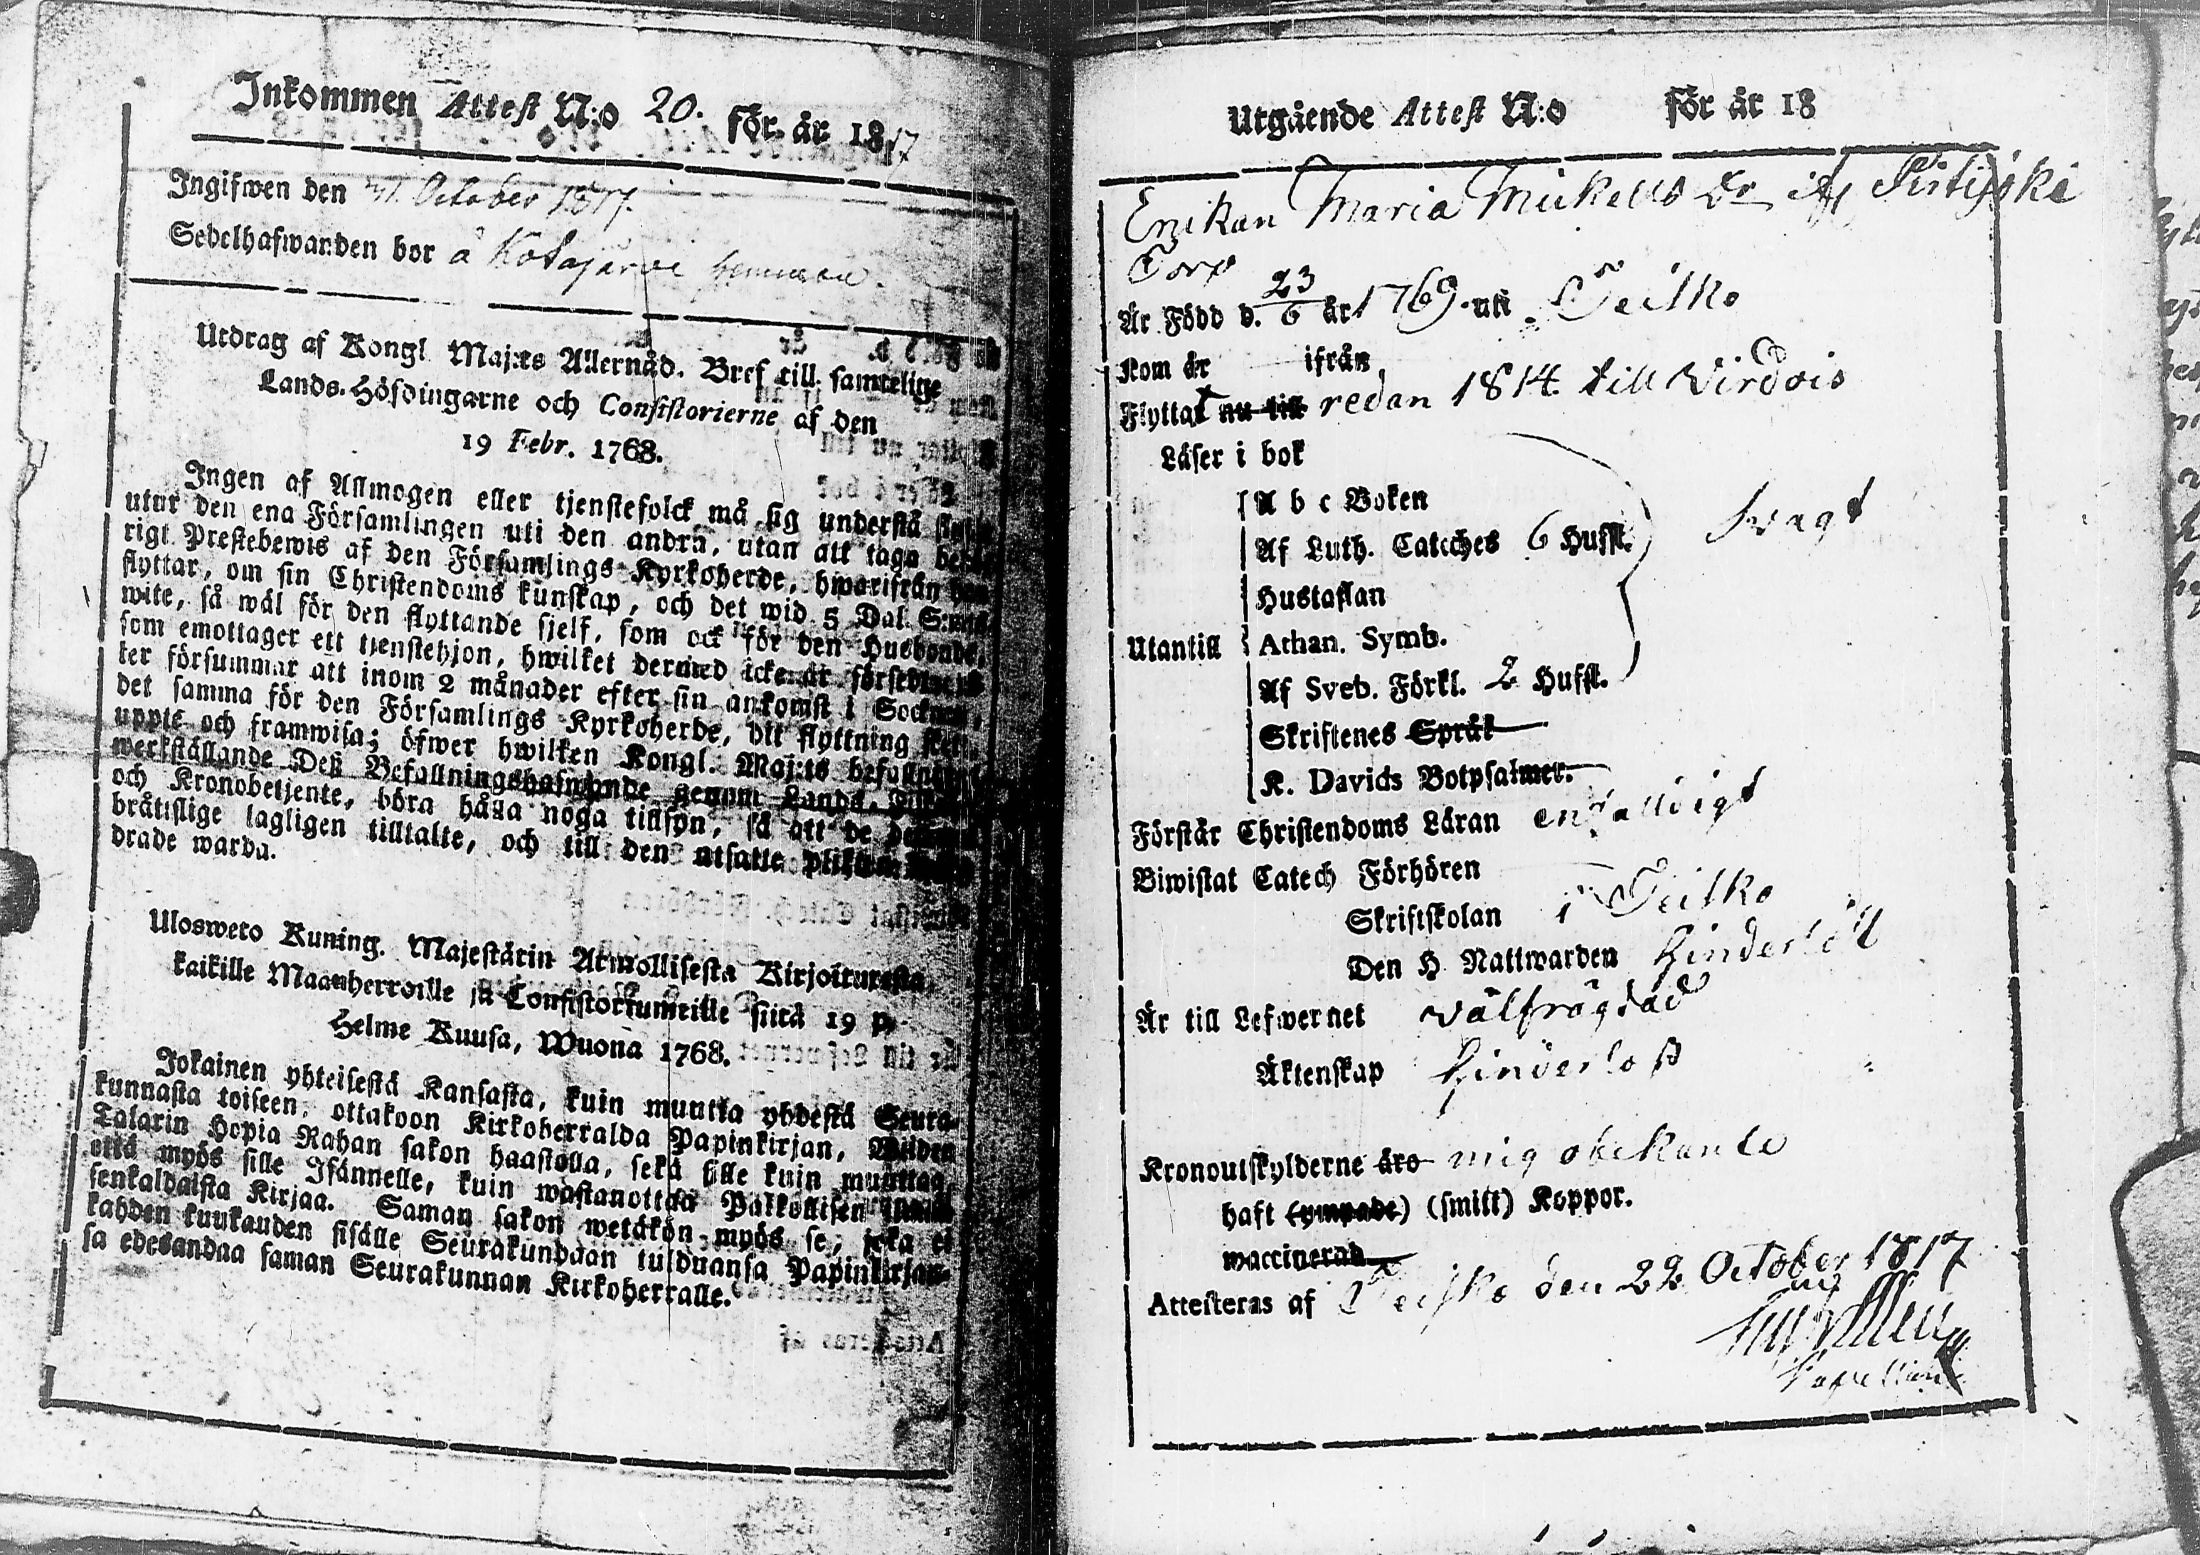 Inkommen Attest N:o 20. för år 1817
Ingifwen den 31. October 1817.
Sedelhafwanden bor å Kotajärvi hemman.
Utdrag af Kongl. Maj:ts Allernåd. Bref till samtelige
Lands-Höfdingarne och Consistorierne af den
19 Febr. 1768.
Ingen af Allmogen eller tjenstefolck må sig understå flytta
utur den ena Församlingen uti den andra, utan att taga behö-
rigt Prestebewis af den Församlings Kyrkoherde, hwarifrån han
flyttar, om sin Christendoms kunskap, och det wid 5 Dal. S:mts
wite, så wäl för den flyttande sjelf, som ock för den Husbonde,
som emottager ett tjenstehjon, hwilket dermed icke är försedt
ler försummar att inom 2 månader efter sin ankomst i Socknen,
det samma för den Församlings Kyrkoherde, dit flyttning sker,
uppte och framwisa; öfwer hwilken Kongl. Maj:ts befallning
werkställande Deß Befallningshafwande genom Lands-
och Kronobetjente, böra hålla noga tillsyn, så att de
bråttslige lagligen tilltalte, och till den utsatte plikten
drade warda.
Ulosweto Kuning. Majestätin Armollisesta Kirjoituxesta
kaikille Maanherroille ja Consistoriumeille siitä 19 p.
Helme Kuusa, Wuona 1768.
Jokainen yhteisestä Kansasta, kuin muutta yhdestä Seura-
kunnasta toiseen, ottakoon Kirkoherralda Papinkirjan, Wiiden
Talarin Hopia Rahan sakon haastolla, sekä sille kuin muuttaa,
että myös sille Isännelle, kuin wastanottaa Palkollisen
senkaldaista Kirjaa. Saman sakon wetäkön myös se, joka ei
kahden kuukauden sisälle Seurakundaan tulduansa Papinkirjan-
sa edesandaa saman Seurakunnan Kirkoherralle.
Utgående Attest N:o för år 18
Enkan Maria Mickels Dr if Pirtijoki
Torp
Är Född d. 23/6 år 1769. uti Teisko
Kom år ifrån
Flyttat nu till redan 1814 till Virdois
Läser i bok
A b c Boken
Af Luth. Cateches 6 Hufst. Svagt
Hustaflan
Utantill Athan. Symb.
Af Sveb. Förkl. 2 Hufst.
Skriftenes Språk
K. Davids Botpsalmer.
Förstår Christendoms Läran enfalldigt
Biwistat Catech Förhören
Skriftskolan i Teisko
Den H. Nattwarden hinderlöst
Är till Lefwernet välfrägdad
Äktenskap hinderlös
Kronoutskylderne äro mig obekante
haft (ympade) (smitt) Koppor.
waccinerad
Attesteras af Teisko den 22 October 1817
Capellan